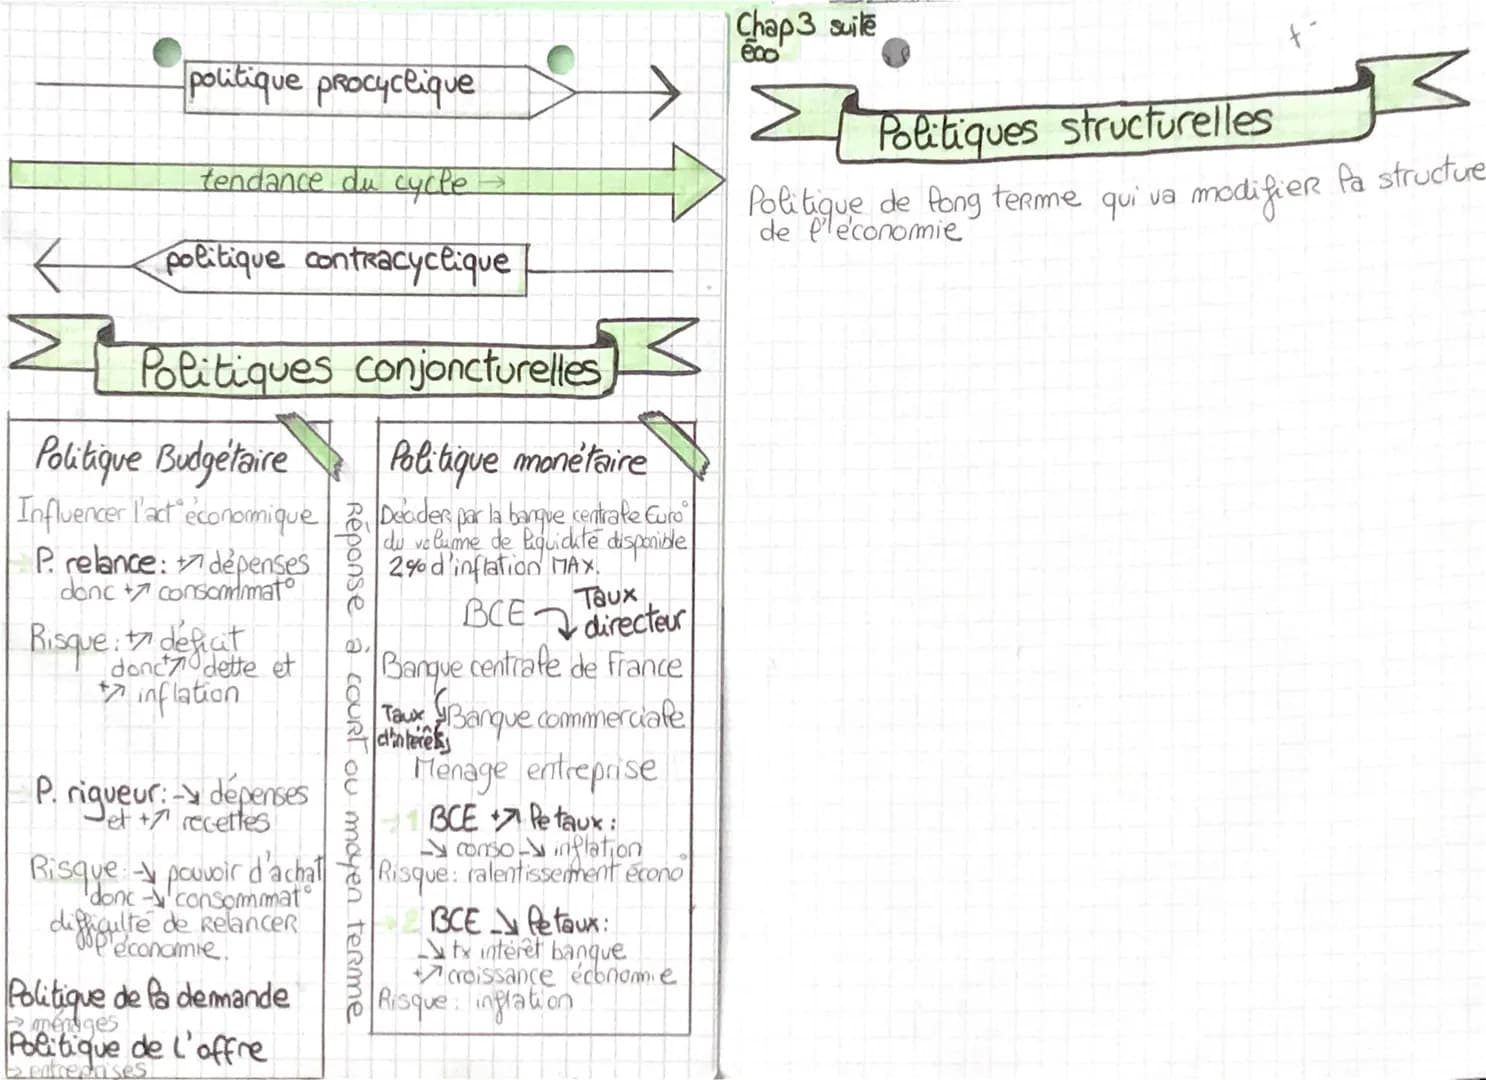 politique procyclique
tendance du cycle →
politique contracyclique
Politiques conjoncturelles
Politique Budgétaire
Influencer l'act° économique
P. relance: +↗ dépenses
donc +↗ consommat°
Risque: +↗ déficit
donc +↗ dette et
+↗ inflation
P. rigueur: -↘ dépenses
et +↗ recettes
Risque: -↘ pouvoir d'achat
donc -↘ consommat°
difficulté de relancer
l'économie.
Politique de la demande
→ ménages
Politique de l'offre
→ entreprises
Réponse à court ou moyen terme
Politique monétaire
Décider par la banque centrale Euro°
du volume de liquidité disponible
2% d'inflation MAX.
BCE Taux
directeur
Banque centrale de France
Taux Banque commerciale
d'intérêts
Ménage entreprise
→1 BCE +↗ le taux:
-↘ conso -↘ inflation
Risque: ralentissement écono°
→2 BCE -↘ le taux:
-↘ tx intérêt banque
+↗ croissance économie
Risque: inflation
Chap3 suite
éco
+ -
Politiques structurelles
Politique de long terme qui va modifier la structure
de l'économie